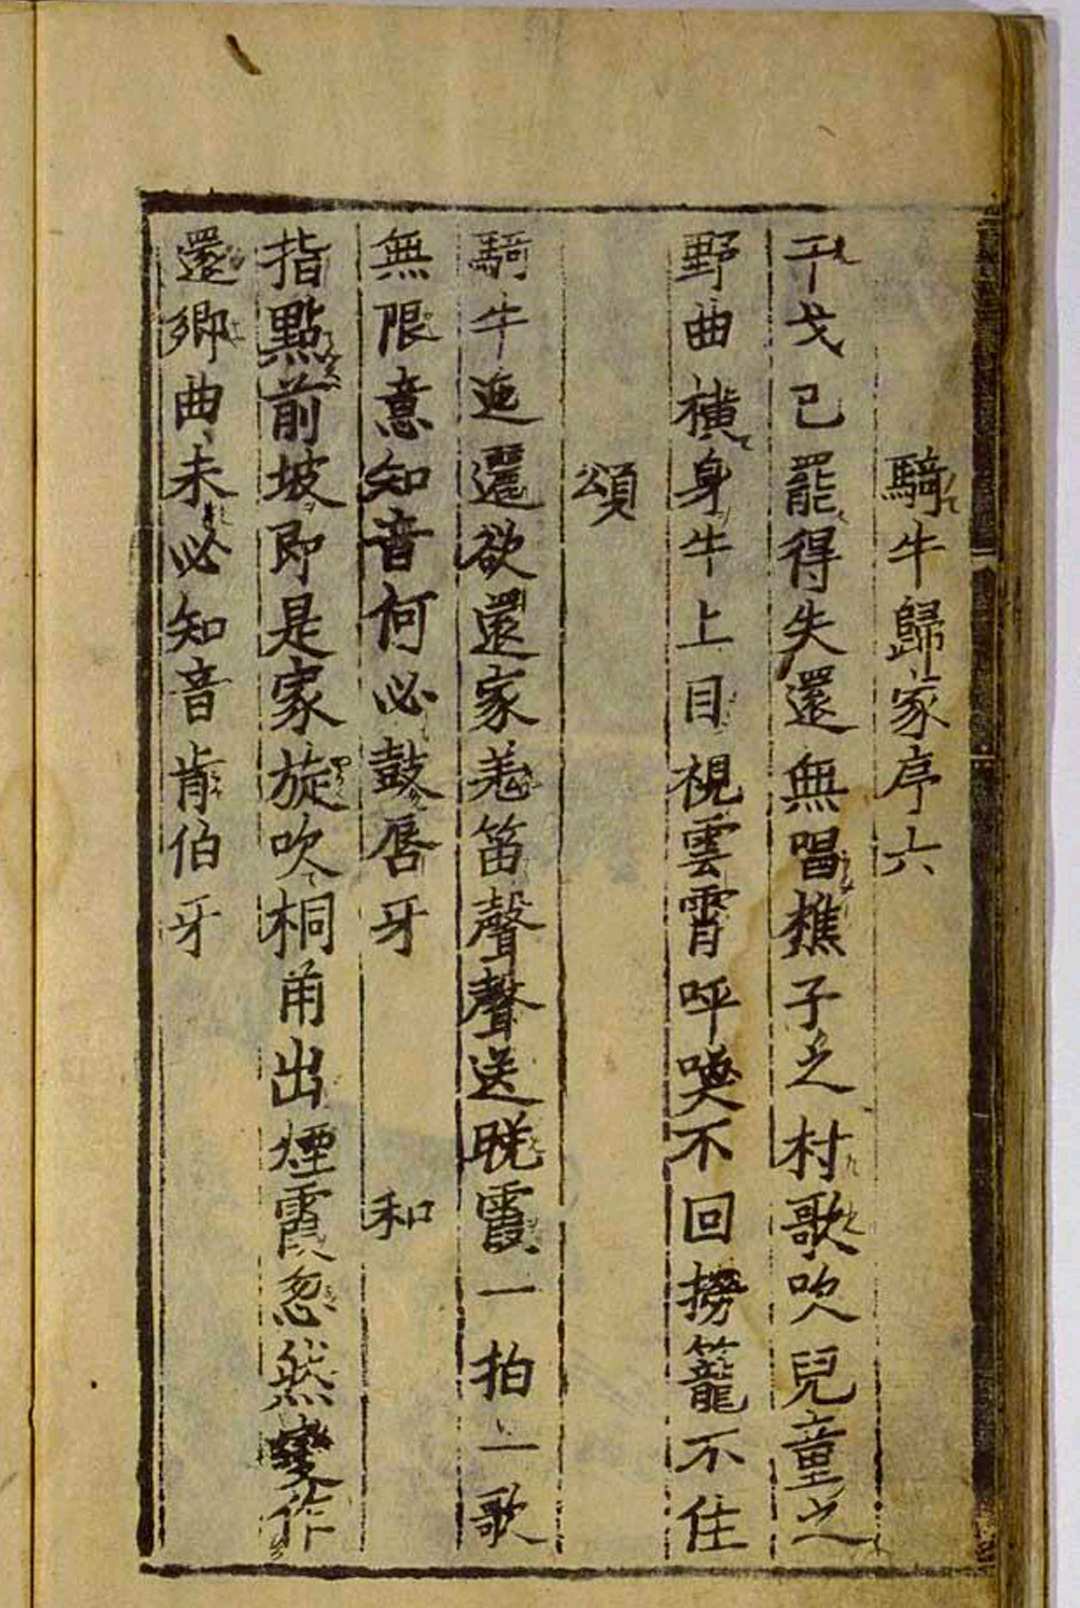 騎牛歸家序六
干戈已罷得失還無唱樵子之村歌吹兒童之
野曲橫身牛上目視雲霄呼喚不回撈籠不住
頌
騎牛迤邐欲還家羌笛聲聲送晚霞一拍一歌
無限意知音何必鼓唇牙 和
指點前坡即是家旋吹桐角出煙霞忽然變作
還鄉曲未必知音肯伯牙